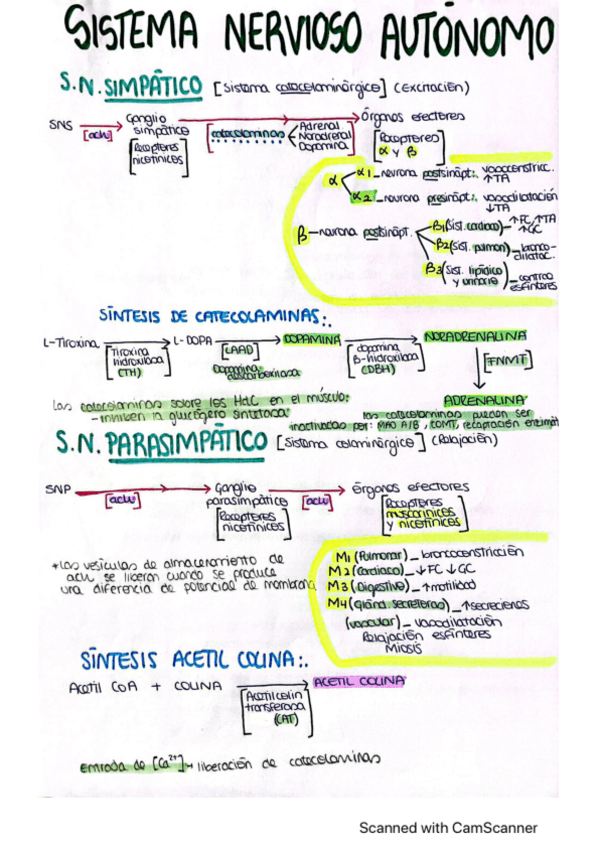 SISTEMA NERVIOSO AUTÓNOMO
S.N. SIMPÁTICO [Sistema catecolaminérgico] (excitación)
SNS [ach] Ganglio simpático [Receptores nicotínicos]
catecolaminas Adrenal Noradrenal Dopamina
Órganos efectores [Receptores α y β]
α α1_neurona postsinápt:. vasoconstricc. ↑TA
α2_neurona presinápt:. vasodilatación ↓TA
β—neurona postsinápt. β1(sist. cardiaco)— ↑FC/↑TA ↑GC
β2(sist. pulmon)—bronco-dilatac.
β3(sist. lipídico y urinario)—control esfínteres
SÍNTESIS DE CATECOLAMINAS:.
L-Tiroxina → L-DOPA → DOPAMINA → NORADRENALINA
[Tiroxina hidroxilasa (TH)] [LAAD] Dopamina descarboxilasa [dopamina β-hidroxilasa (DBH)] [FNMT]
ADRENALINA
Las catecolaminas sobre los HdC en el músculo:
- inhiben la glucógeno sintetasa
las catecolaminas pueden ser
inactivadas por: MAO A/B, COMT, recaptación enzimát
S.N. PARASIMPÁTICO [Sistema colaminérgico] (Relajación)
SNP [ach] Ganglio parasimpático [Receptores nicotínicos] [ach] órganos efectores
[Receptores muscarínicos y nicotínicos]
+Las vesículas de almacenamiento de
ach se liberan cuando se produce
una diferencia de potencial de membrana
M1 (Pulmonar)_ broncoconstricción
M2 (Cardiaco)_ ↓FC ↓GC
M3 (Digestivo)_ ↑motilidad
M4 (Gland. secretoras)_ ↑secreciones
(vascular)_ vasodilatación
Relajación esfínteres
Miosis
SÍNTESIS ACETIL COLINA:.
Acetil CoA + COLINA → ACETIL COLINA
[Acetilcolin transferasa (CAT)]
Entrada de [Ca²⁺]→ liberación de catecolaminas
Scanned with CamScanner